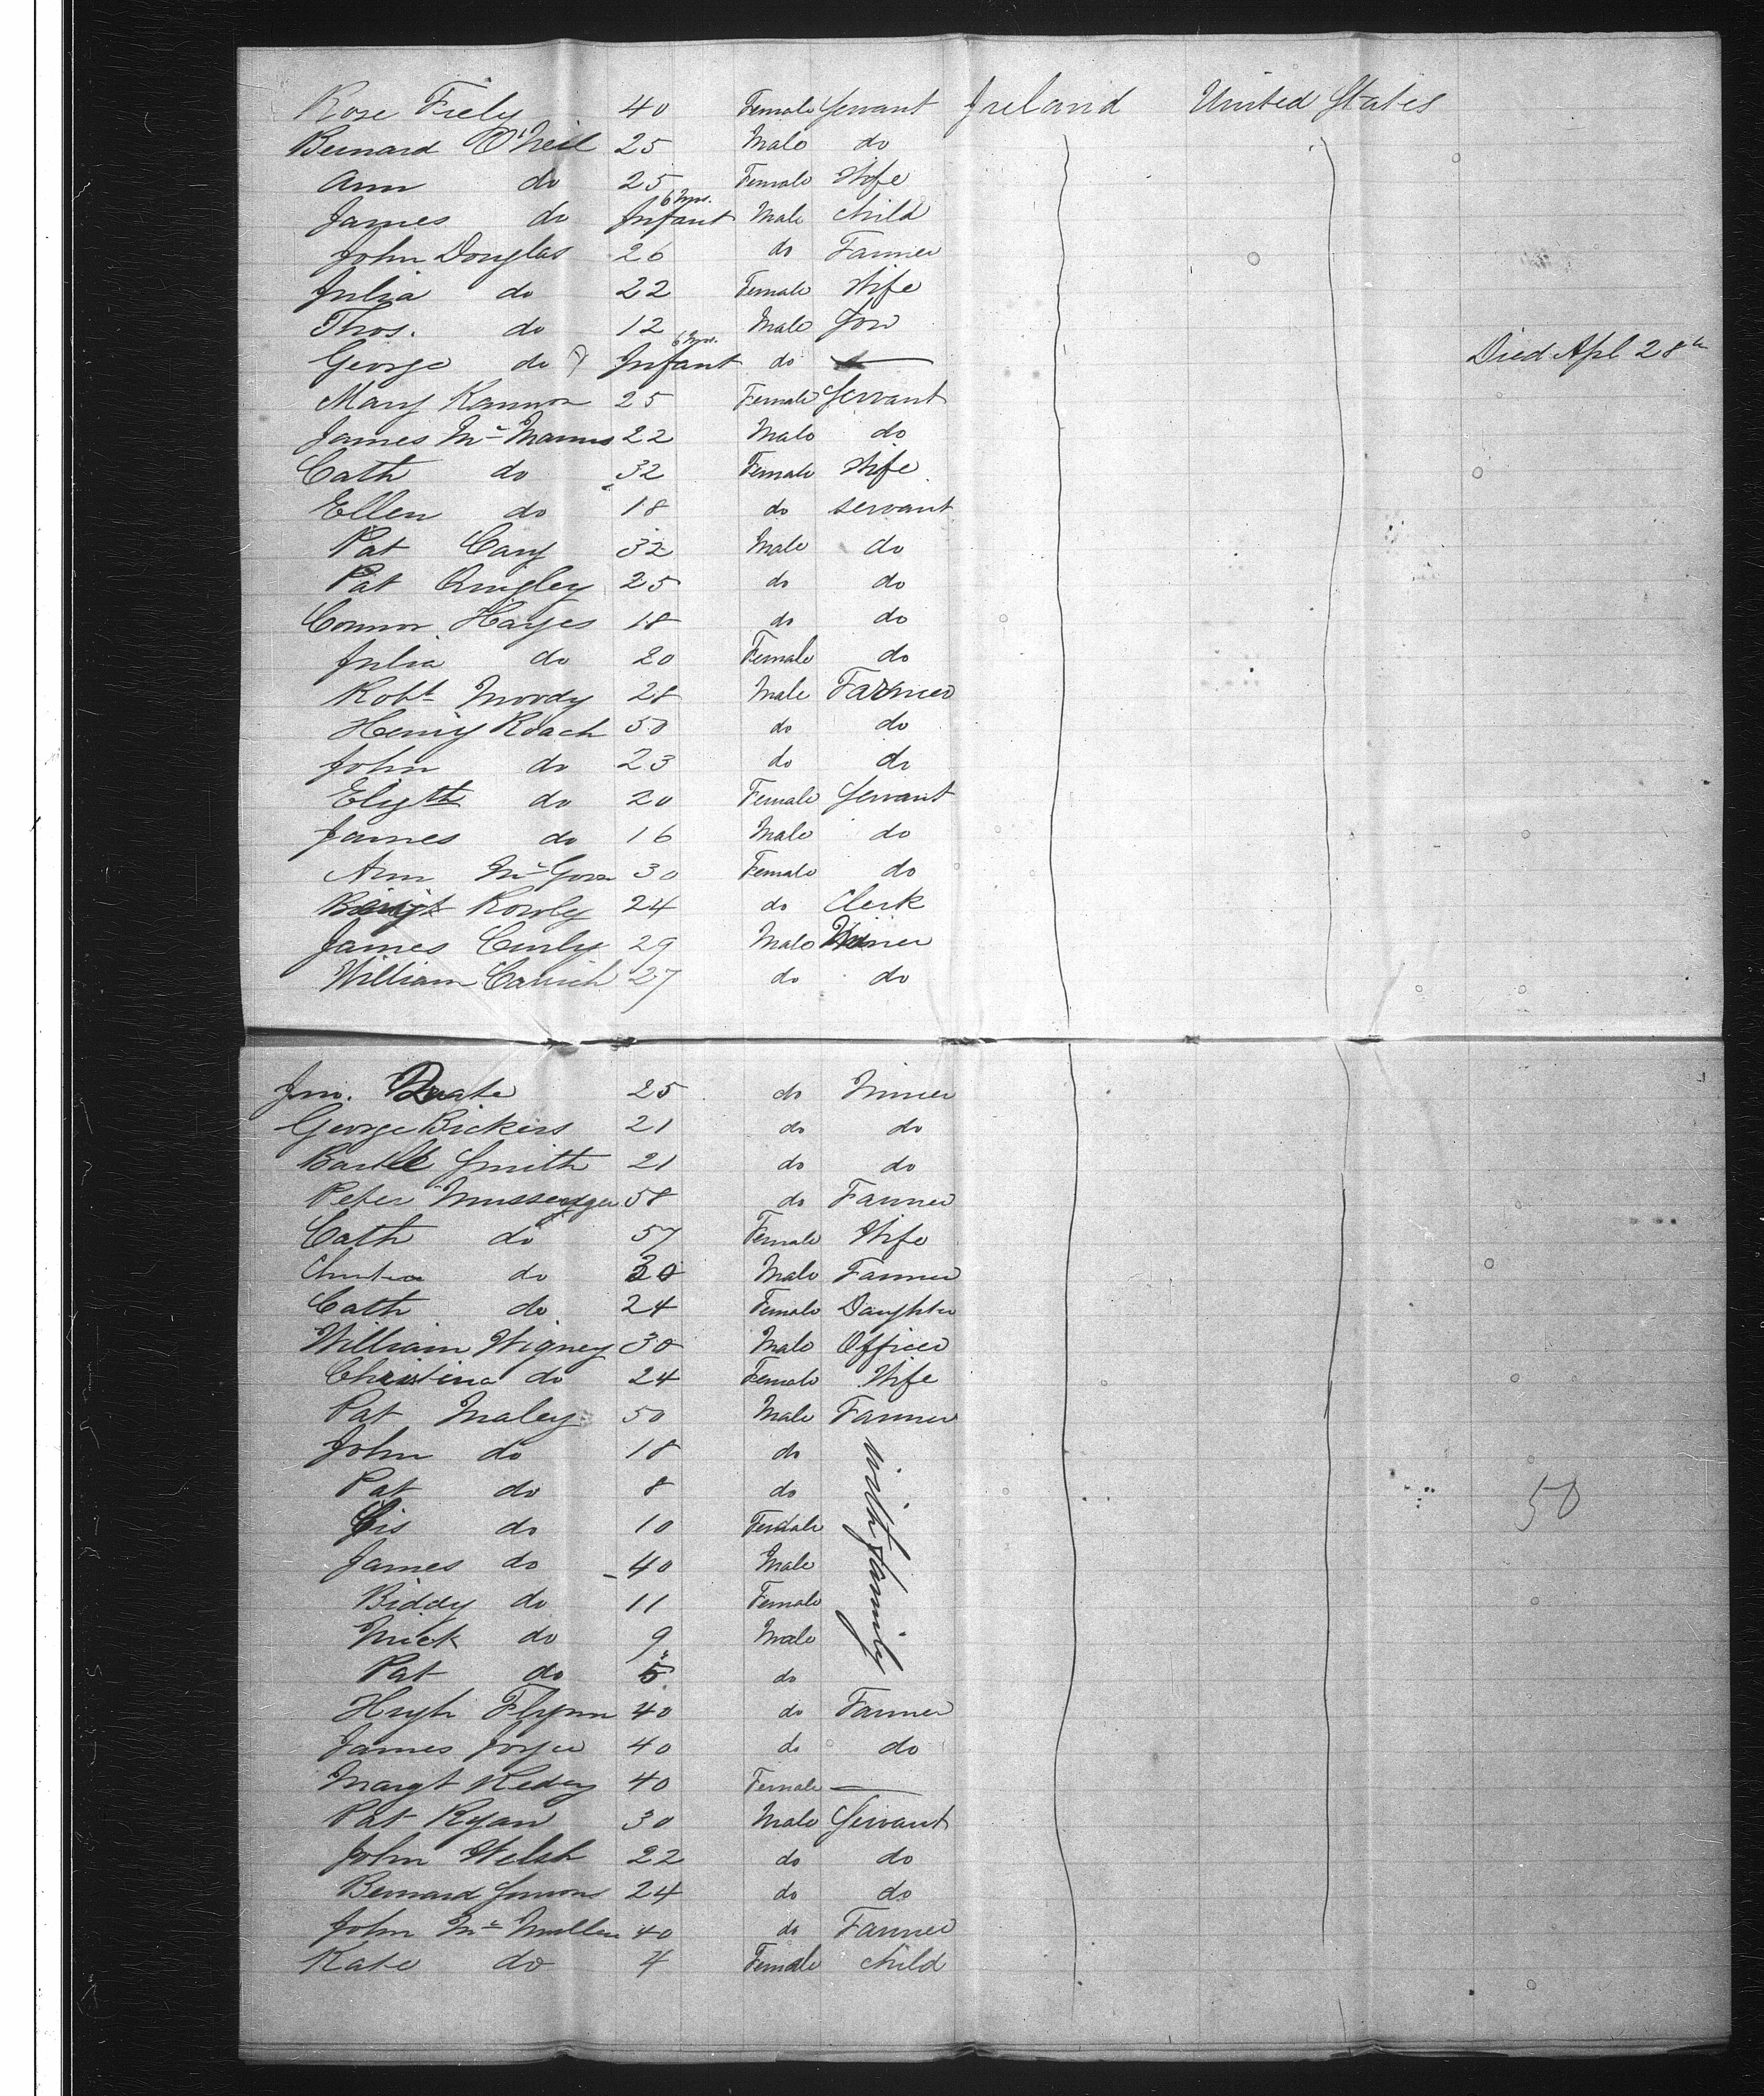 Rose Fiely 40 Female Servant Ireland United States
Bernard O'Neil 25 Male do
Ann do 25 Female Wife
James do Infant 6 Mos. Male child
John Douglas 26 do Farmer
Julia do 22 Female Wife
Thos. do 12 Male Son
George do Infant 6 Mos. do Died Apl 28th
Mary Kannon 25 Female Servant
James Mc Manus 22 Male do
Cath do 32 Female Wife
Ellen do 18 do servant
Pat Cary 32 Male do
Pat Quigley 25 do do
Connor Hayes 18 do do
Julia do 20 Female do
Robt Moody 28 Male Farmer
Henry Roach 50 do do
John do 23 do do
Elizth do 20 Female Servant
James do 16 Male do
Ann Mc Govr 30 Female do
Rowly 24 do Clerk
James Curly 29 Male Miner
William 27 do do
Jno. 25 do Miner
George Bickers 21 do do
Smith 21 do do
Peter 58 do Farmer
Cath do 57 Female Wife
do 30 Male Farmer
Cath do 24 Female Daughter
William Wigney 30 Male Officer
Christina do 24 Female Wife
Pat Maley 50 Male Farmer
John do 18 do with family
Pat do 8 do
Cis do 10 Female 50
James do 40 Male
Biddy do 11 Female
Mick do 9 Male
Pat do 5 do
Hugh Flynn 40 do Farmer
James Joyce 40 do do
Margt 40 Female
Pat Ryan 30 Male Servant
John Welsh 22 do do
Bernard 24 do do
John Mc Mullen 40 do Farmer
Kate do 4 Female child